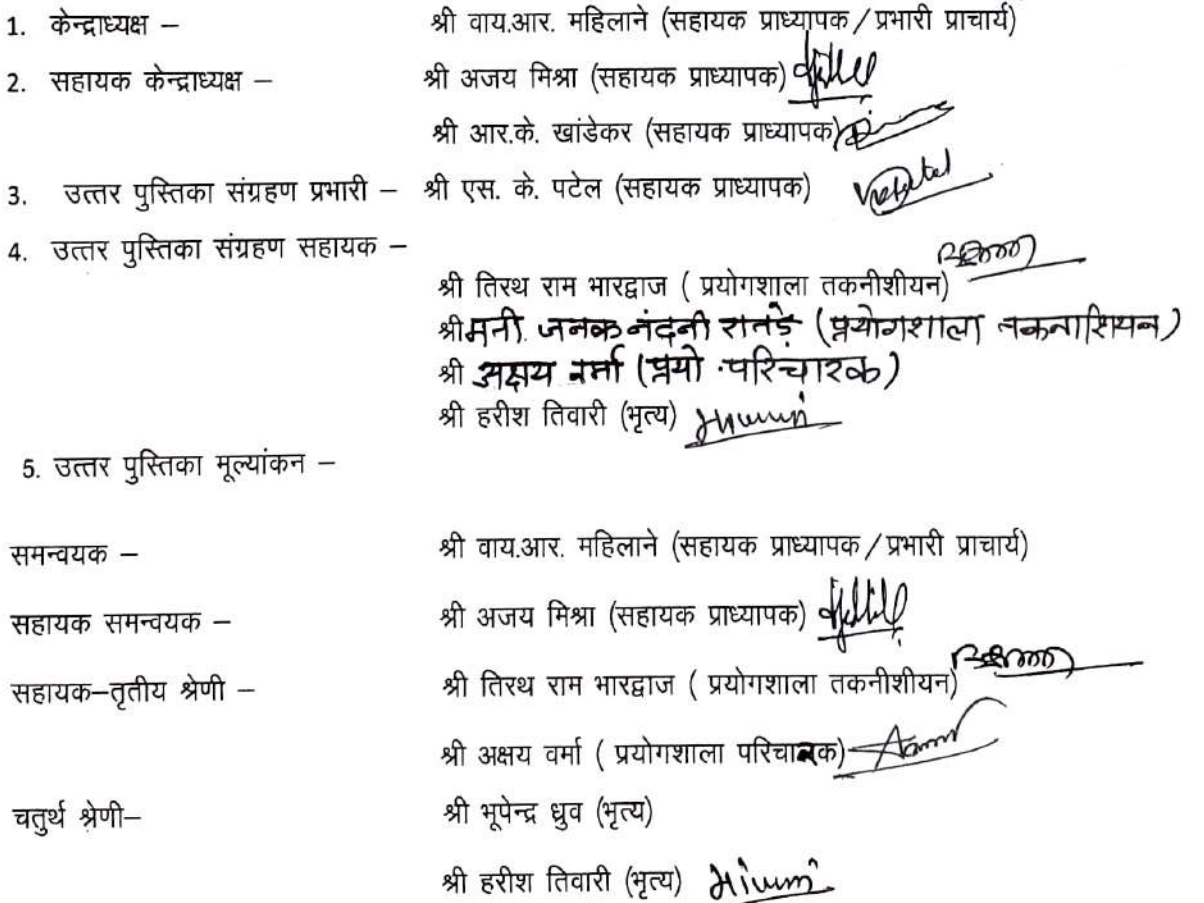 1. केन्द्राध्यक्ष – श्री वाय.आर. महिलाने (सहायक प्राध्यापक / प्रभारी प्राचार्य)
2. सहायक केन्द्राध्यक्ष – श्री अजय मिश्रा (सहायक प्राध्यापक)
श्री आर.के. खांडेकर (सहायक प्राध्यापक)
3. उत्तर पुस्तिका संग्रहण प्रभारी – श्री एस. के. पटेल (सहायक प्राध्यापक)
4. उत्तर पुस्तिका संग्रहण सहायक –
श्री तिरथ राम भारद्वाज ( प्रयोगशाला तकनीशीयन)
श्रीमती जनक नंदनी रातड़े (प्रयोगशाला तकनाशियन)
श्री अक्षय वर्मा (प्रयो. परिचारक)
श्री हरीश तिवारी (भृत्य)
5. उत्तर पुस्तिका मूल्यांकन –
समन्वयक – श्री वाय.आर. महिलाने (सहायक प्राध्यापक / प्रभारी प्राचार्य)
सहायक समन्वयक – श्री अजय मिश्रा (सहायक प्राध्यापक)
सहायक–तृतीय श्रेणी – श्री तिरथ राम भारद्वाज ( प्रयोगशाला तकनीशीयन)
श्री अक्षय वर्मा ( प्रयोगशाला परिचारक)
चतुर्थ श्रेणी– श्री भूपेन्द्र ध्रुव (भृत्य)
श्री हरीश तिवारी (भृत्य)